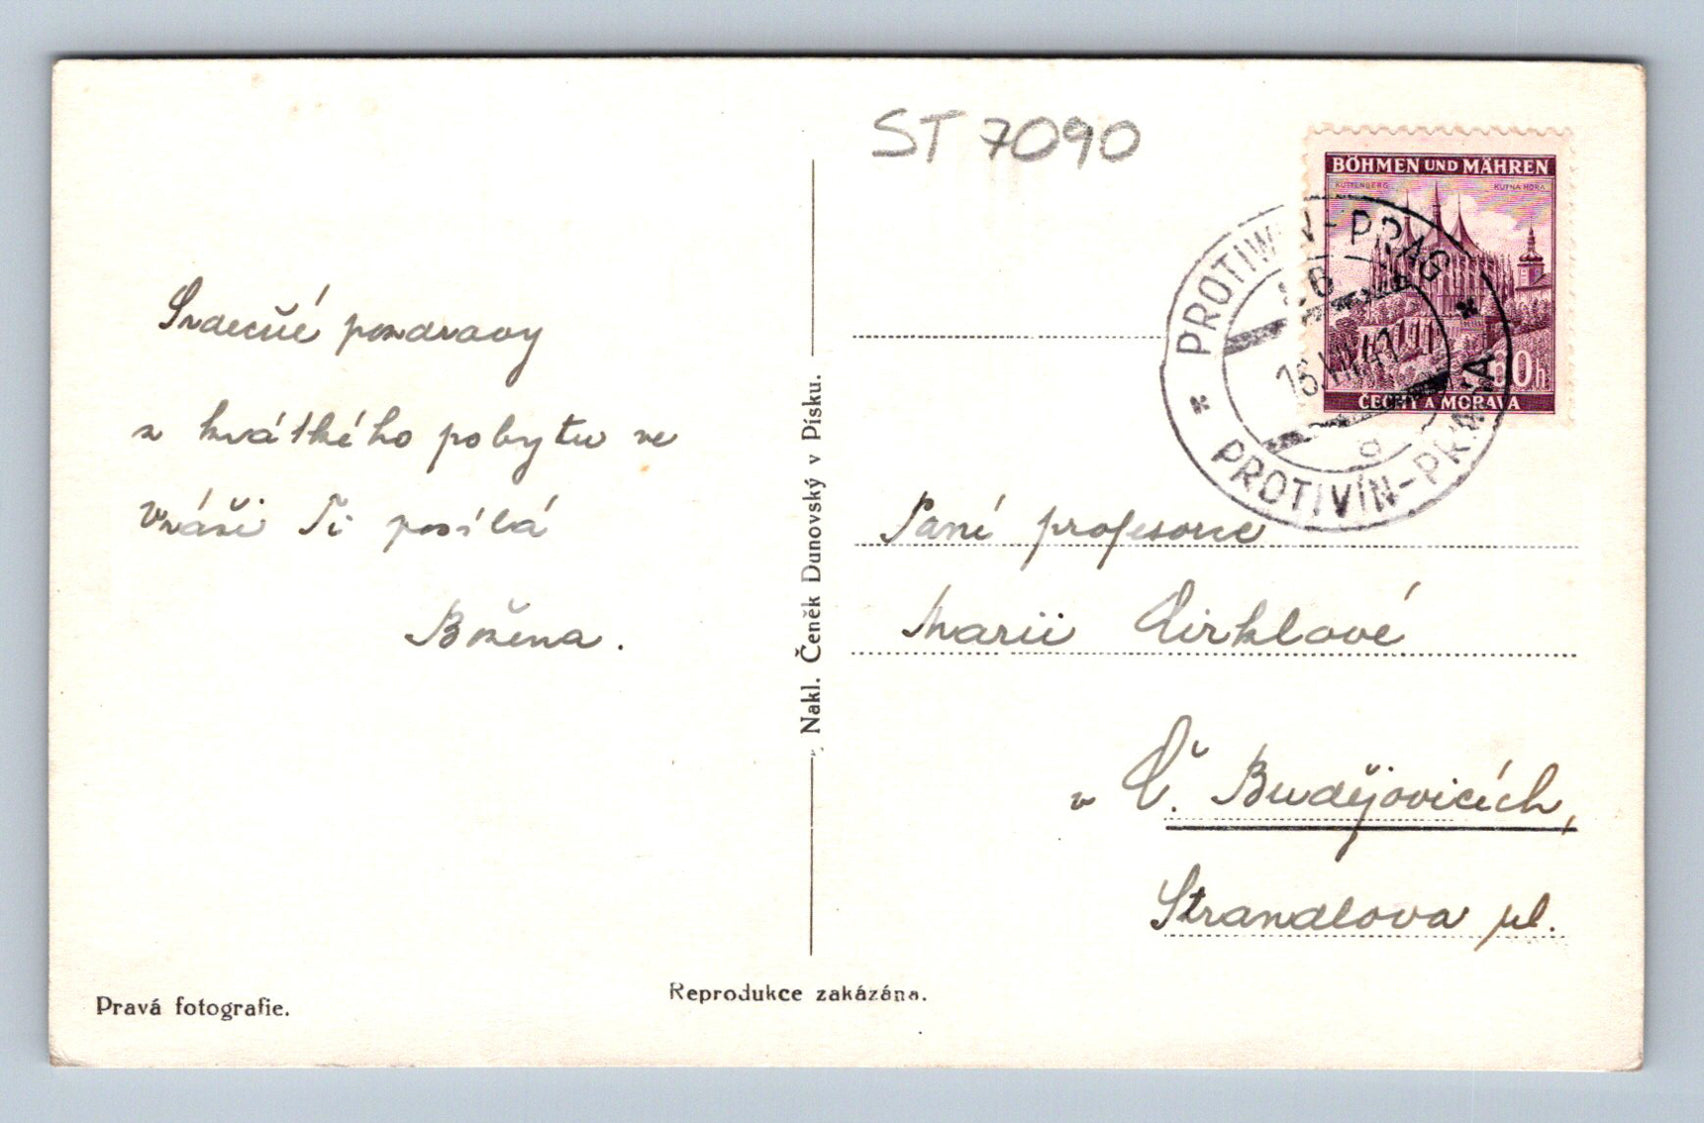 ST 7090
BÖHMEN UND MÄHREN
KUTTENBERG KUTNÁ HORA
60h
ČECHY A MORAVA
PROTIWIN-PRAG
16.VII.41
PROTIVÍN-PRAHA
Srdečné pozdravy
z krátkého pobytu ve
Vráži Ti posílá
Božena.
Paní profesorce
Marii Cirklové
v Č. Budějovicích,
ul.
Nakl. Čeněk Dunovský v Písku.
Pravá fotografie.
Reprodukce zakázána.